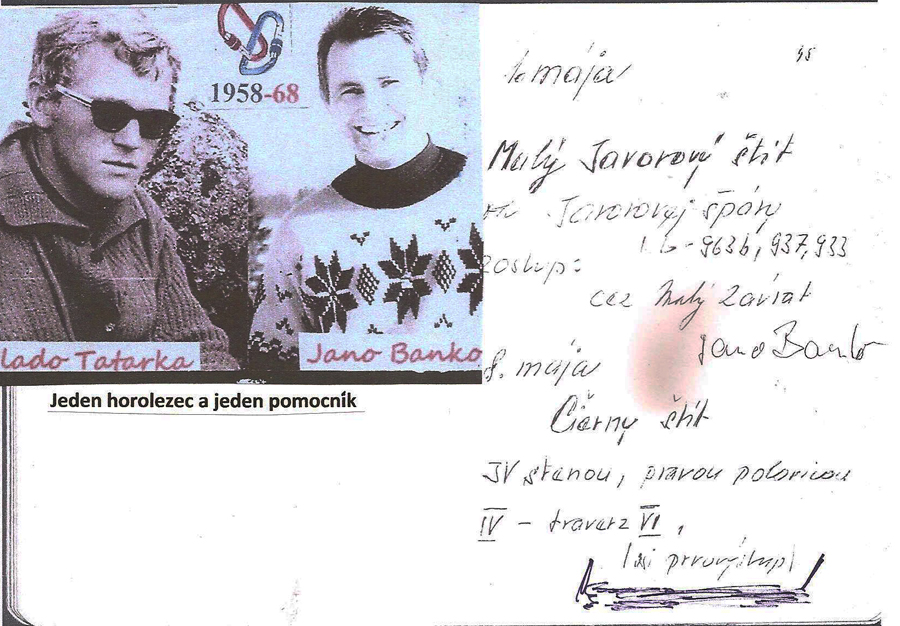 1958-68
lado Tatarka
Jano Banko
Jeden horolezec a jeden pomocník
1. mája
Malý Javorový štít
Javorovej špáry
963b, 937, 933
zostup:
cez Malý Závrat
Jano Banko
8. mája
Čierny štít
JV stenou, pravou polovicou
IV - traverz VI,
(asi prvovýstup)